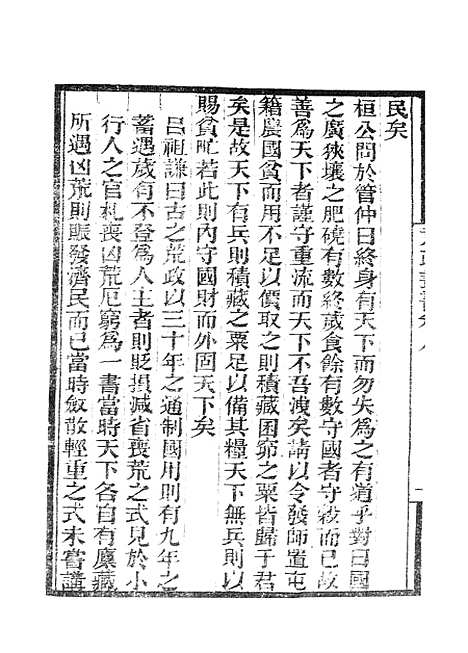 民矣
桓公問於管仲曰終身有天下而勿失爲之有道乎對曰國
之廣狹壤之肥磽有數終歲食餘有數守國者守穀而已故
善爲天下者謹守重流而天下不吾洩矣請以令發師置屯
籍農國貧而用不足以價取之則積藏囷窌之粟皆歸于君
矣是故天下有兵則積藏之粟足以備其糧天下無兵則以
賜貧甿若此則內守國財而外固天下矣
呂祖謙曰古之荒政以三十年之通制國用則有九年之
蓄遇歲有不登爲人主者則貶損減省喪荒之式見於小
行人之官札喪凶荒厄窮爲一書當時天下各自有廩藏
所遇凶荒則賑發濟民而已當時斂散輕重之式未嘗講